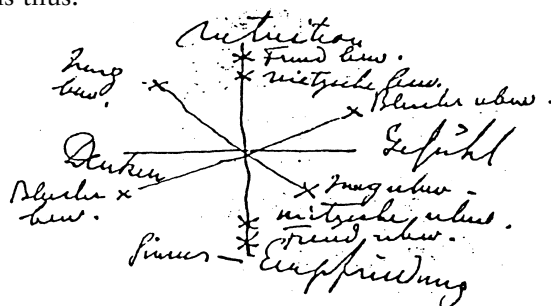 is thus:
Intuition
Freud bew.
Nietzsche bew.
Jung
bew.
Bleuler ubew.
Denken
Gefühl
Bleuler
bew.
Jung ubew.
Nietzsche ubew.
Freud ubew.
Sinnes – Empfindung